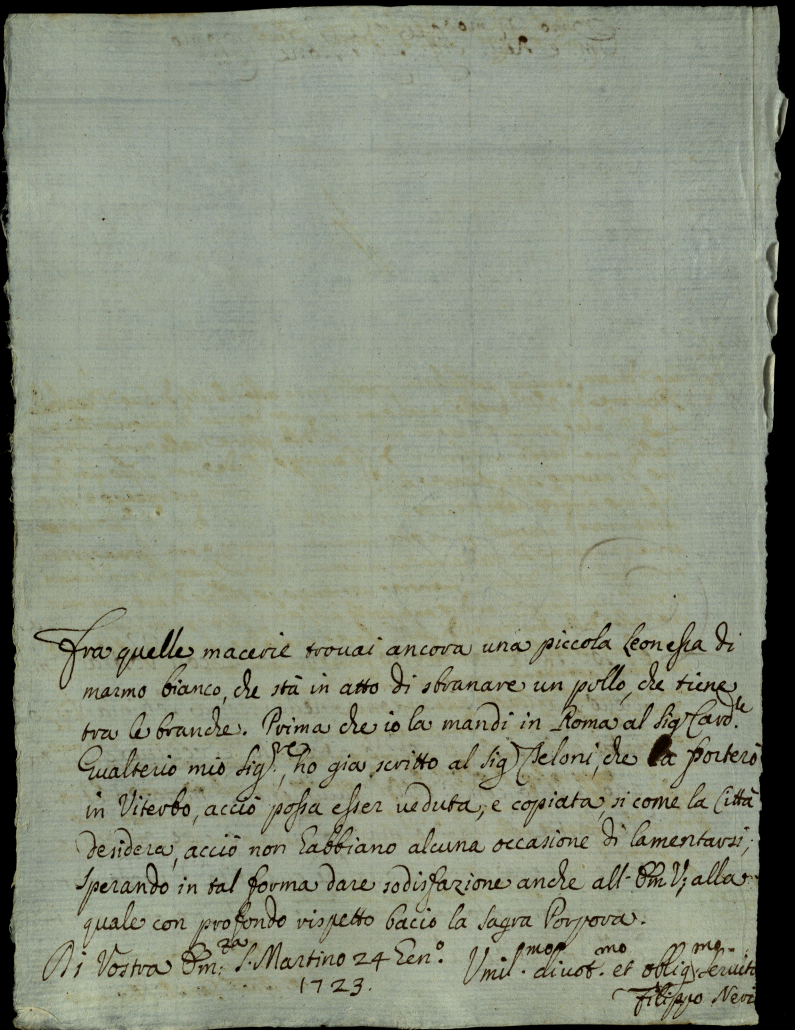 Fra quelle macerie trovai ancora una piccola Leonessa di
marmo bianco, che stà in atto di sbranare un pollo, che tiene
tra le branche. Prima che io la mandi in Roma al Sig. Card.le
Gualterio mio Sig.re, ho gia scritto al Sig. Zeloni, che la porterò
in Viterbo, acciò possa esser veduta, e copiata, si come la Città
desidera, acciò non habbiano alcuna occasione di lamentarsi,
sperando in tal forma dare sodisfazione anche all' Em. V; alla
quale con profondo rispetto bacio la Sagra Porpora.
Di Vostra Em.za S. Martino 24 Gen.o
1723.
Umil.mo divot.mo et oblig.mo
Filippo Neri